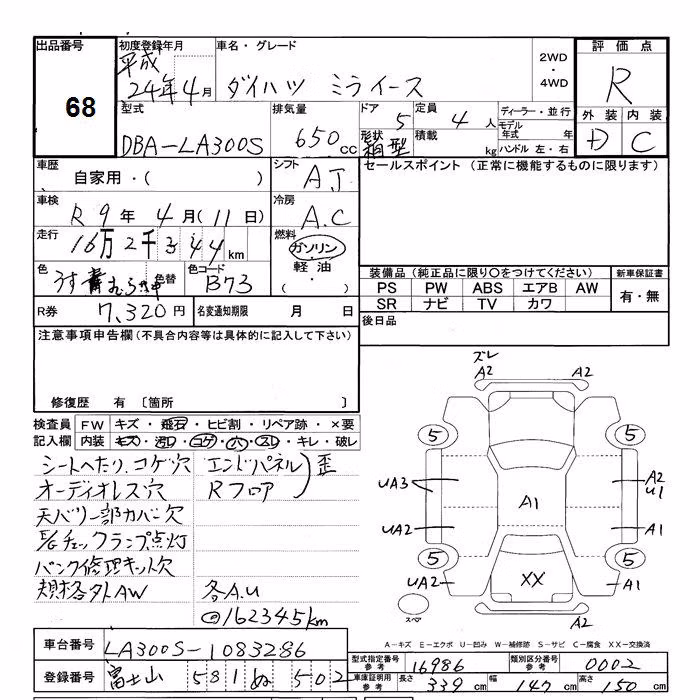 出品番号 初度登録年月 車名・グレード 2WD・4WD 評価点
68 平成24年4月 ダイハツ ミライース R
型式 排気量 ドア 定員 ディーラー・並行 外装 内装
DBA-LA300S 650cc 5 4人 モデル年式 年 D C
形状 箱型 積載 kg ハンドル 左・右
車歴 シフト セールスポイント（正常に機能するものに限ります）
自家用・( ) AJ
車検 冷房
R9年 4月(11日) A.C
走行 燃料
16万2千344km ガソリン
色 色替 色コード 軽油・( )
B73
装備品（純正品に限り○をつけてください） 新車保証書
PS PW ABS エアB AW 有・無
SR ナビ TV カワ
R券 7,320円 名変通知期限 月 日 後日品
注意事項申告欄（不具合内容等は具体的に記入して下さい）
修復歴 有 〔箇所 〕
検査員 FW キズ・飛石・ヒビ割・リペア跡・×要
記入欄 内装 キズ・汚レ・コゲ・穴・スレ・キレ・破レ
シートヘタリ、コゲ穴 エンドパネル 歪
オーディオレス穴 Rフロア
天バリ一部カバー欠
E/Gチェックランプ点灯
パンク修理キット欠
規格外AW 各A.U
@162345km
ズレ
A2 A2
5 5
UA3 A2
U1
A1
UA2 A1
5 5
UA2 XX A1
スペア A2
A-キズ E-エクボ U-凹み W-補修跡 S-サビ C-腐食 XX-交換済
車台番号 LA300S-1083286
型式指定番号 参考 16986 類別区分番号 参考 0002
登録番号 富士山 581 ぬ 502
車庫証明用 参考 長さ 339cm 幅 147cm 高さ 150cm